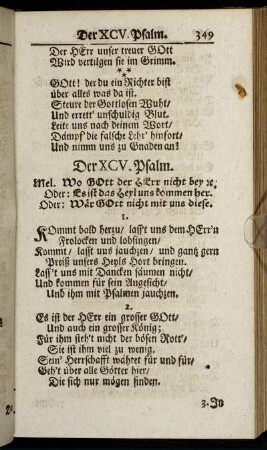 Der XCV. Psalm. 349
Der HErr unser treuer GOtt
Wird vertilgen sie im Grimm.
* * *
GOtt! der du ein Richter bist
über alles was da ist.
Steure der Gottlosen Wuht/
Und errett' unschuldig Blut.
Leite uns nach deinem Wort/
Dämpf die falsche Lehr' hinfort/
Und nimm uns zu Gnaden an!
Der XCV. Psalm.
Mel. Wo GOtt der HErr nicht bey ꝛc.
Oder: Es ist das Heyl uns kommen her.
Oder: Wär GOtt nicht mit uns diese.
1.
KOmmt bald herzu/ lasst uns dem HErr'n
Frolocken und lobsingen/
Kommt/ lasst uns jauchzen/ und gantz gern
Preiß unsers Heyls Hort bringen.
Lass't uns mit Dancken säumen nicht/
Und kommen für sein Angesicht/
Und ihm mit Psalmen jauchzen.
2.
Es ist der HErr ein grosser GOtt/
Und auch ein grosser König;
Für ihm steh't nicht der bösen Rott'/
Sie ist ihm viel zu wenig.
Sein' Herrschafft währet für und für/
Geh't über alle Götter hier/
Die sich nur mögen finden.
3. In